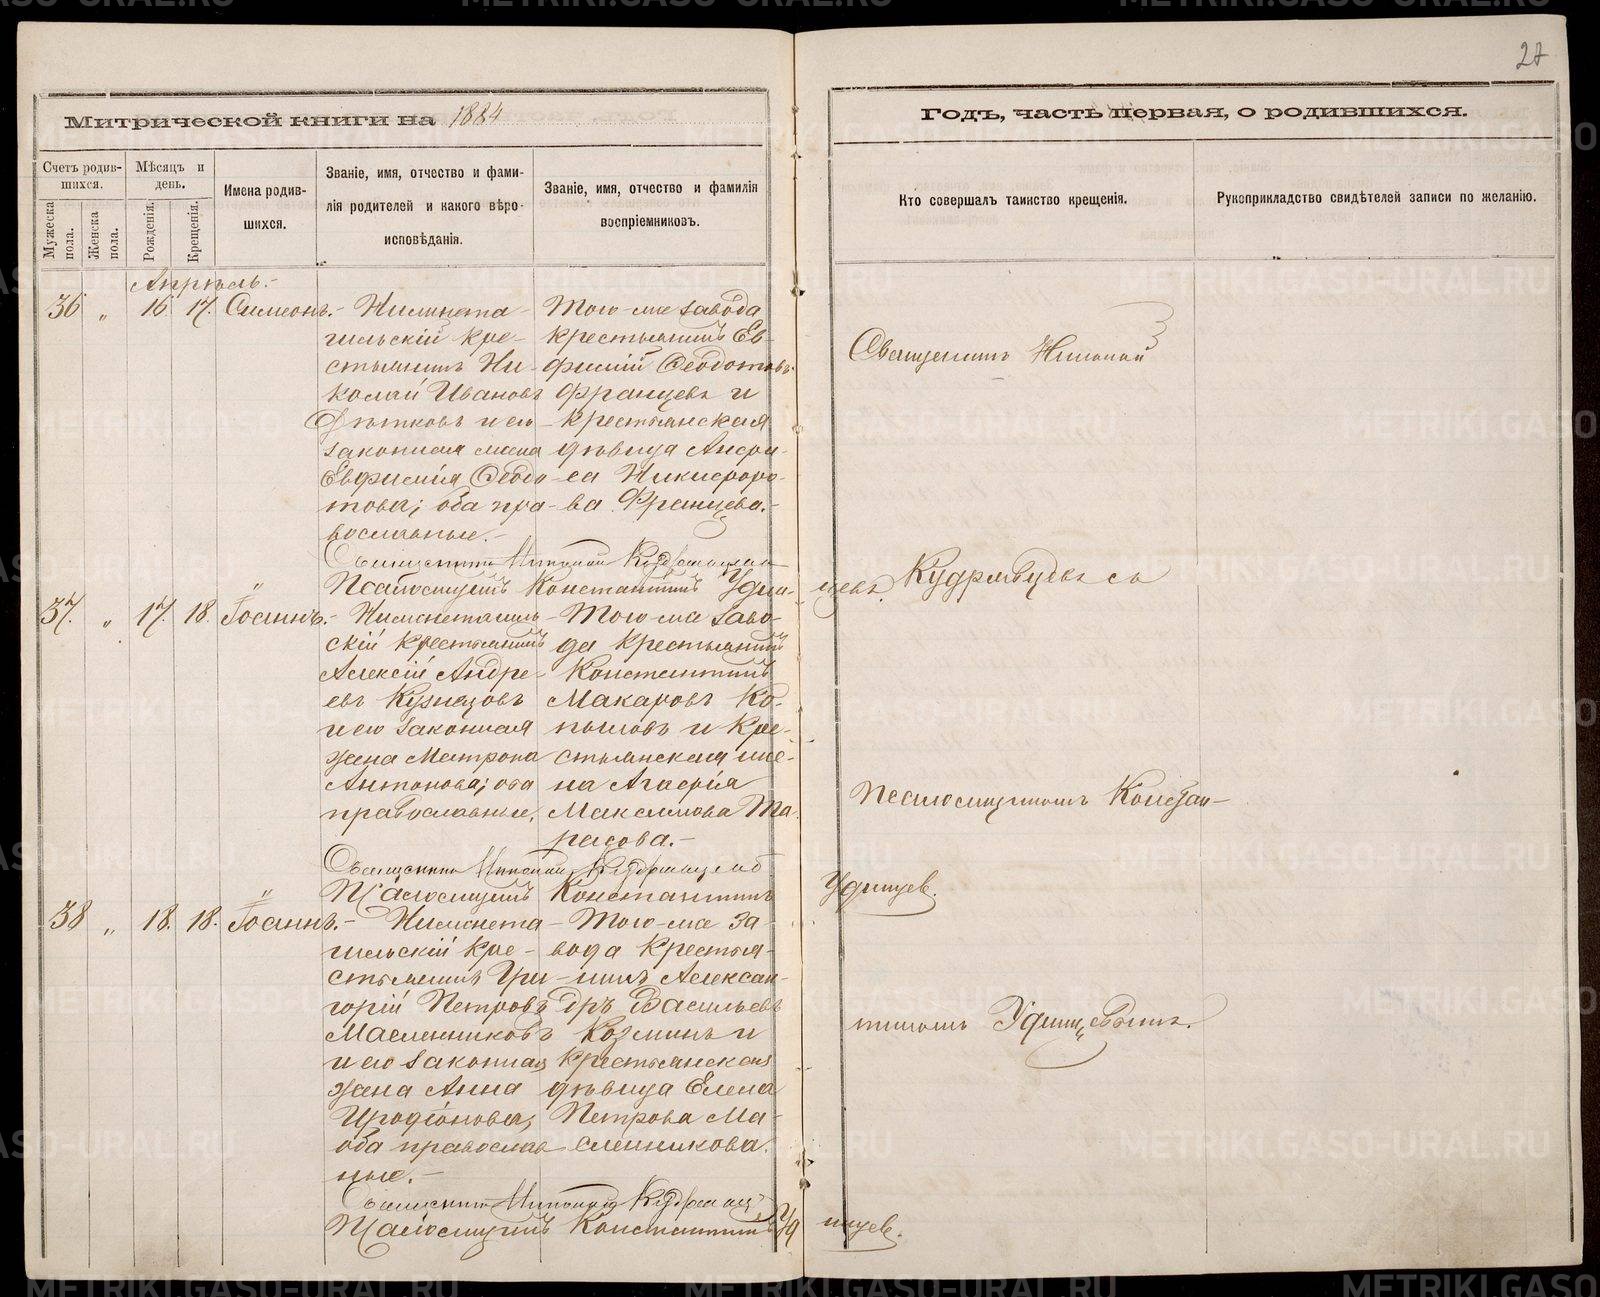 27
Митрической книги на 1884
Годъ, часть первая, о родившихся.
Счетъ родившихся.
Мужеска пола.
Женска пола.
Мѣсяцъ и день.
Рожденія.
Крещенія.
Имена родившихся.
Званіе, имя, отчество и фамилія родителей и какого вѣроисповѣданія.
Званіе, имя, отчество и фамилія воспріемниковъ.
Кто совершалъ таинство крещенія.
Рукоприкладство свидѣтелей записи по желанію.
Апрѣль.-
36 „ 16 17. Симеонъ.-
Нижнета-
гильскій кре-
стьянинъ Ни-
колай Ивановъ
Фѣтковъ и его
законная жена
Евфимія Ѳедо-
това; оба пра-
вославные.-
Того-же завода
крестьянинъ Ев-
фимій Ѳедотовъ
Францевъ и
крестьянская
дѣвица Анфи-
са Никифоро-
ва Францева.-
Священникъ Николай
Кудрявцевъ съ
Священникъ Николай Кудрявцевъ
Псаломщикъ Константинъ Удинцевъ.
37. „ 17. 18. Іоаннъ.-
Нижнетагиль-
скій крестьянинъ
Алексій Андре-
евъ Кузнецовъ
и его законная
жена Матрона
Антонова; оба
православные.
Того-же заво-
да крестьянинъ
Константинъ
Макаровъ Ко-
пыловъ и кре-
стьянская же-
на Агафія
Максимова Та-
расова.-
псаломщикомъ Констан-
Священникъ Николай Кудрявцевъ
Псаломщикъ Константинъ Удинцев.
38 „ 18. 18. Іоаннъ.-
Нижнета-
гильскій кре-
стьянинъ Гри-
горій Петровъ
Масленниковъ
и его законная
жена Анна
Иродіонова;
оба православ-
ные.-
Того-же за-
вода крестья-
нинъ Алексан-
дръ Васильевъ
Козминъ и
крестьянская
дѣвица Елена
Петрова Ма-
сленникова.
тиномъ Удинцевымъ.
Священникъ Николай Кудрявцевъ
Псаломщикъ Константинъ Удинцев.
METRIKI.GASO-URAL.RU